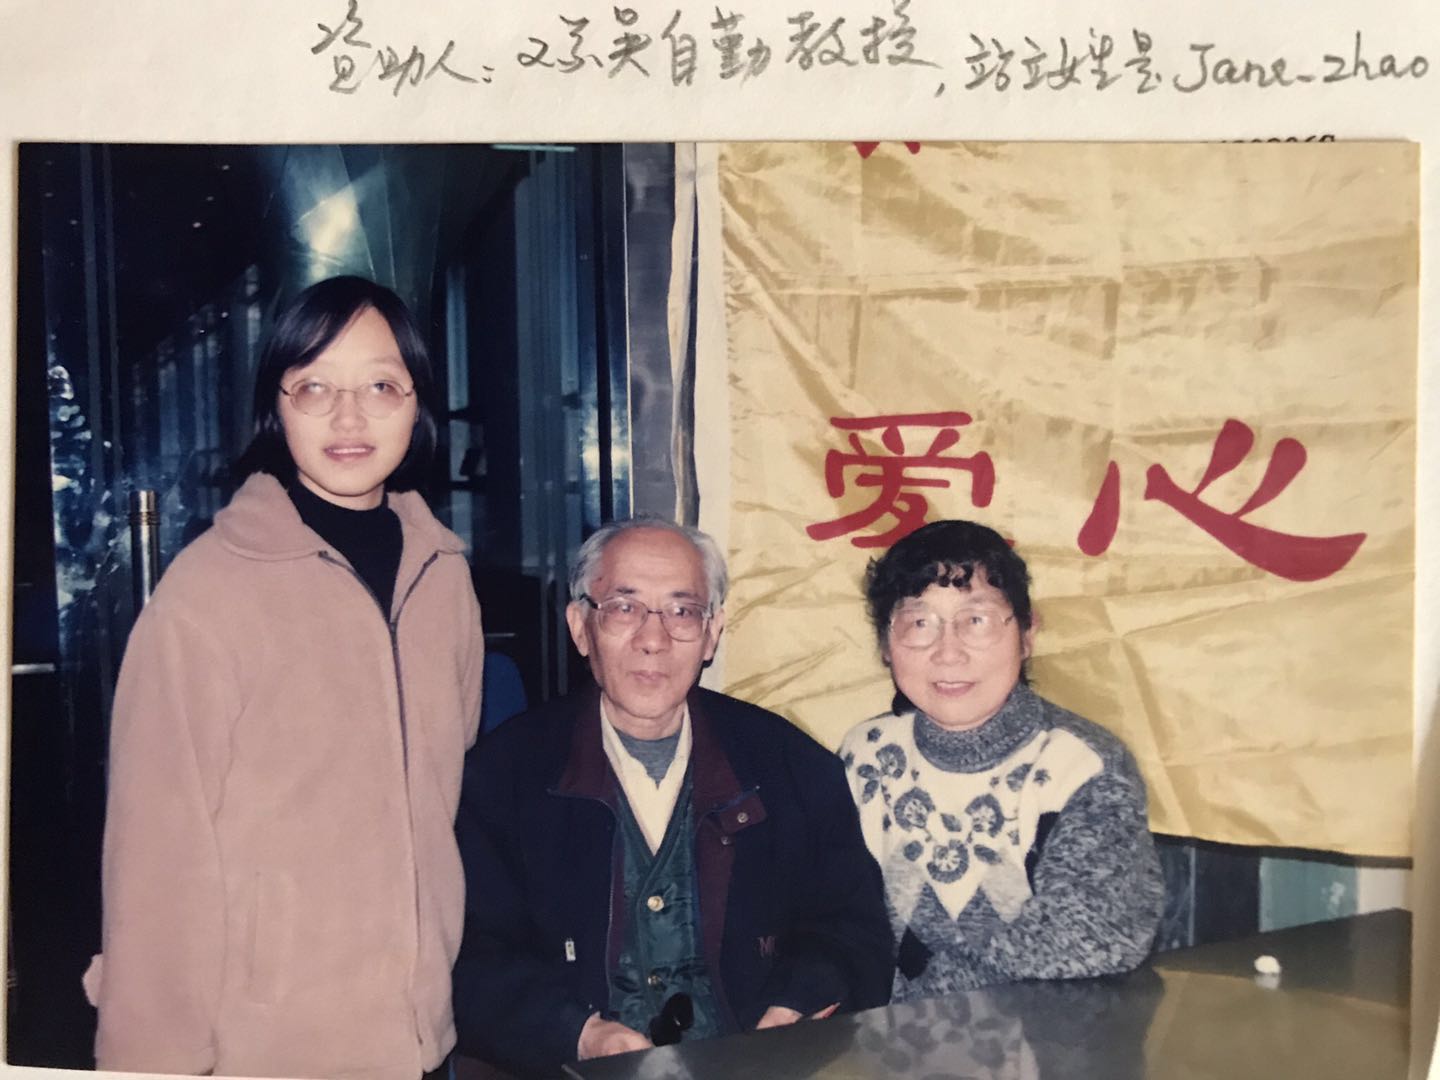 资助人：双亲吴自勤教授，站立女生是Jane-zhao
爱心